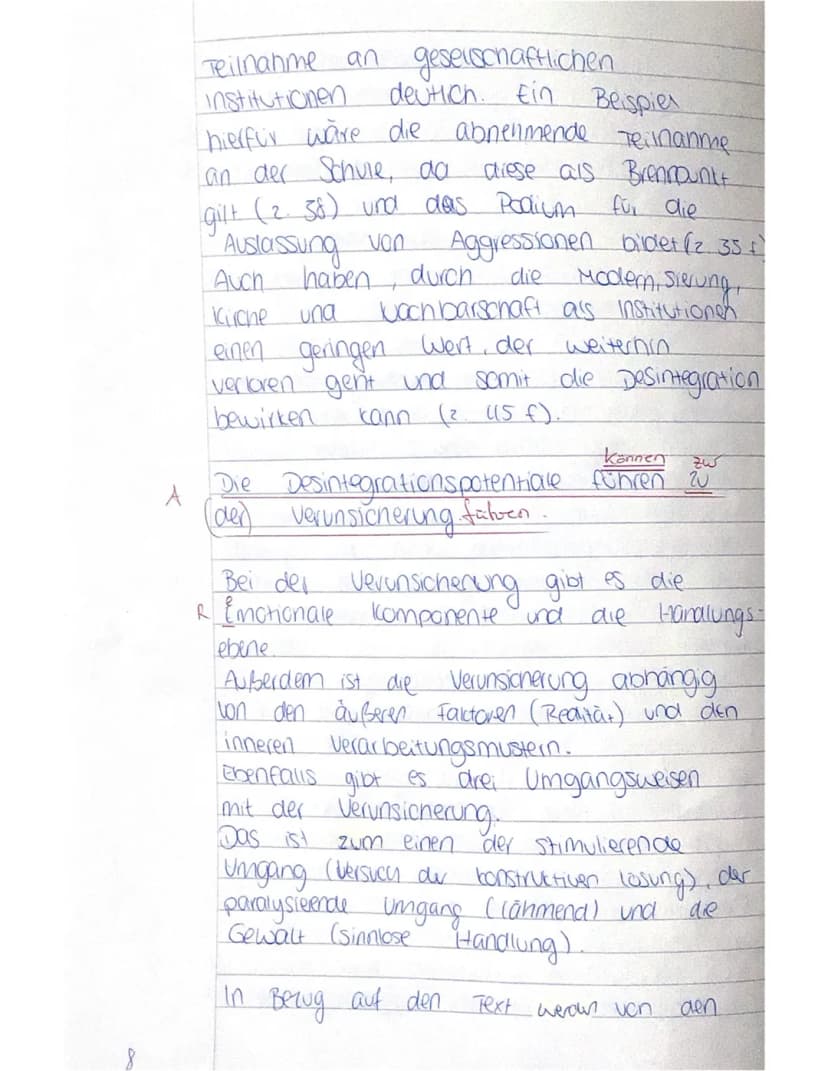 Teilnahme an geselschaftlichen
Institutionen deutlich. Ein Beispiel
hierfür wäre die abnehmende Teilnahme
an der Schule, da diese als Brennpunkt
gilt (z. 38) und das Podium für die
Auslassung von Aggressionen bildet (z. 35 f)
Auch haben, durch die Modernisierung,
Kirche und Nachbarschaft als Institutionen
einen geringen Wert, der weiterhin
verloren geht und somit die Desintegration
bewirken kann (z. 45 f).
können zur
A Die Desintegrationspotentiale führen zu
(der) Verunsicherung führen.
Bei der Verunsicherung gibt es die
R e Emotionale Komponente und die Handlungs-
ebene.
Außerdem ist die Verunsicherung abhängig
von den äußeren Faktoren (Realität) und den
inneren Verarbeitungsmustern.
Ebenfalls gibt es drei Umgangsweisen
mit der Verunsicherung.
Das ist zum einen der stimulierende
Umgang (Versuch der konstruktiven Lösung), der
paralysierende Umgang (lähmend) und die
Gewalt (sinnlose Handlung).
In Bezug auf den Text werden von den
8